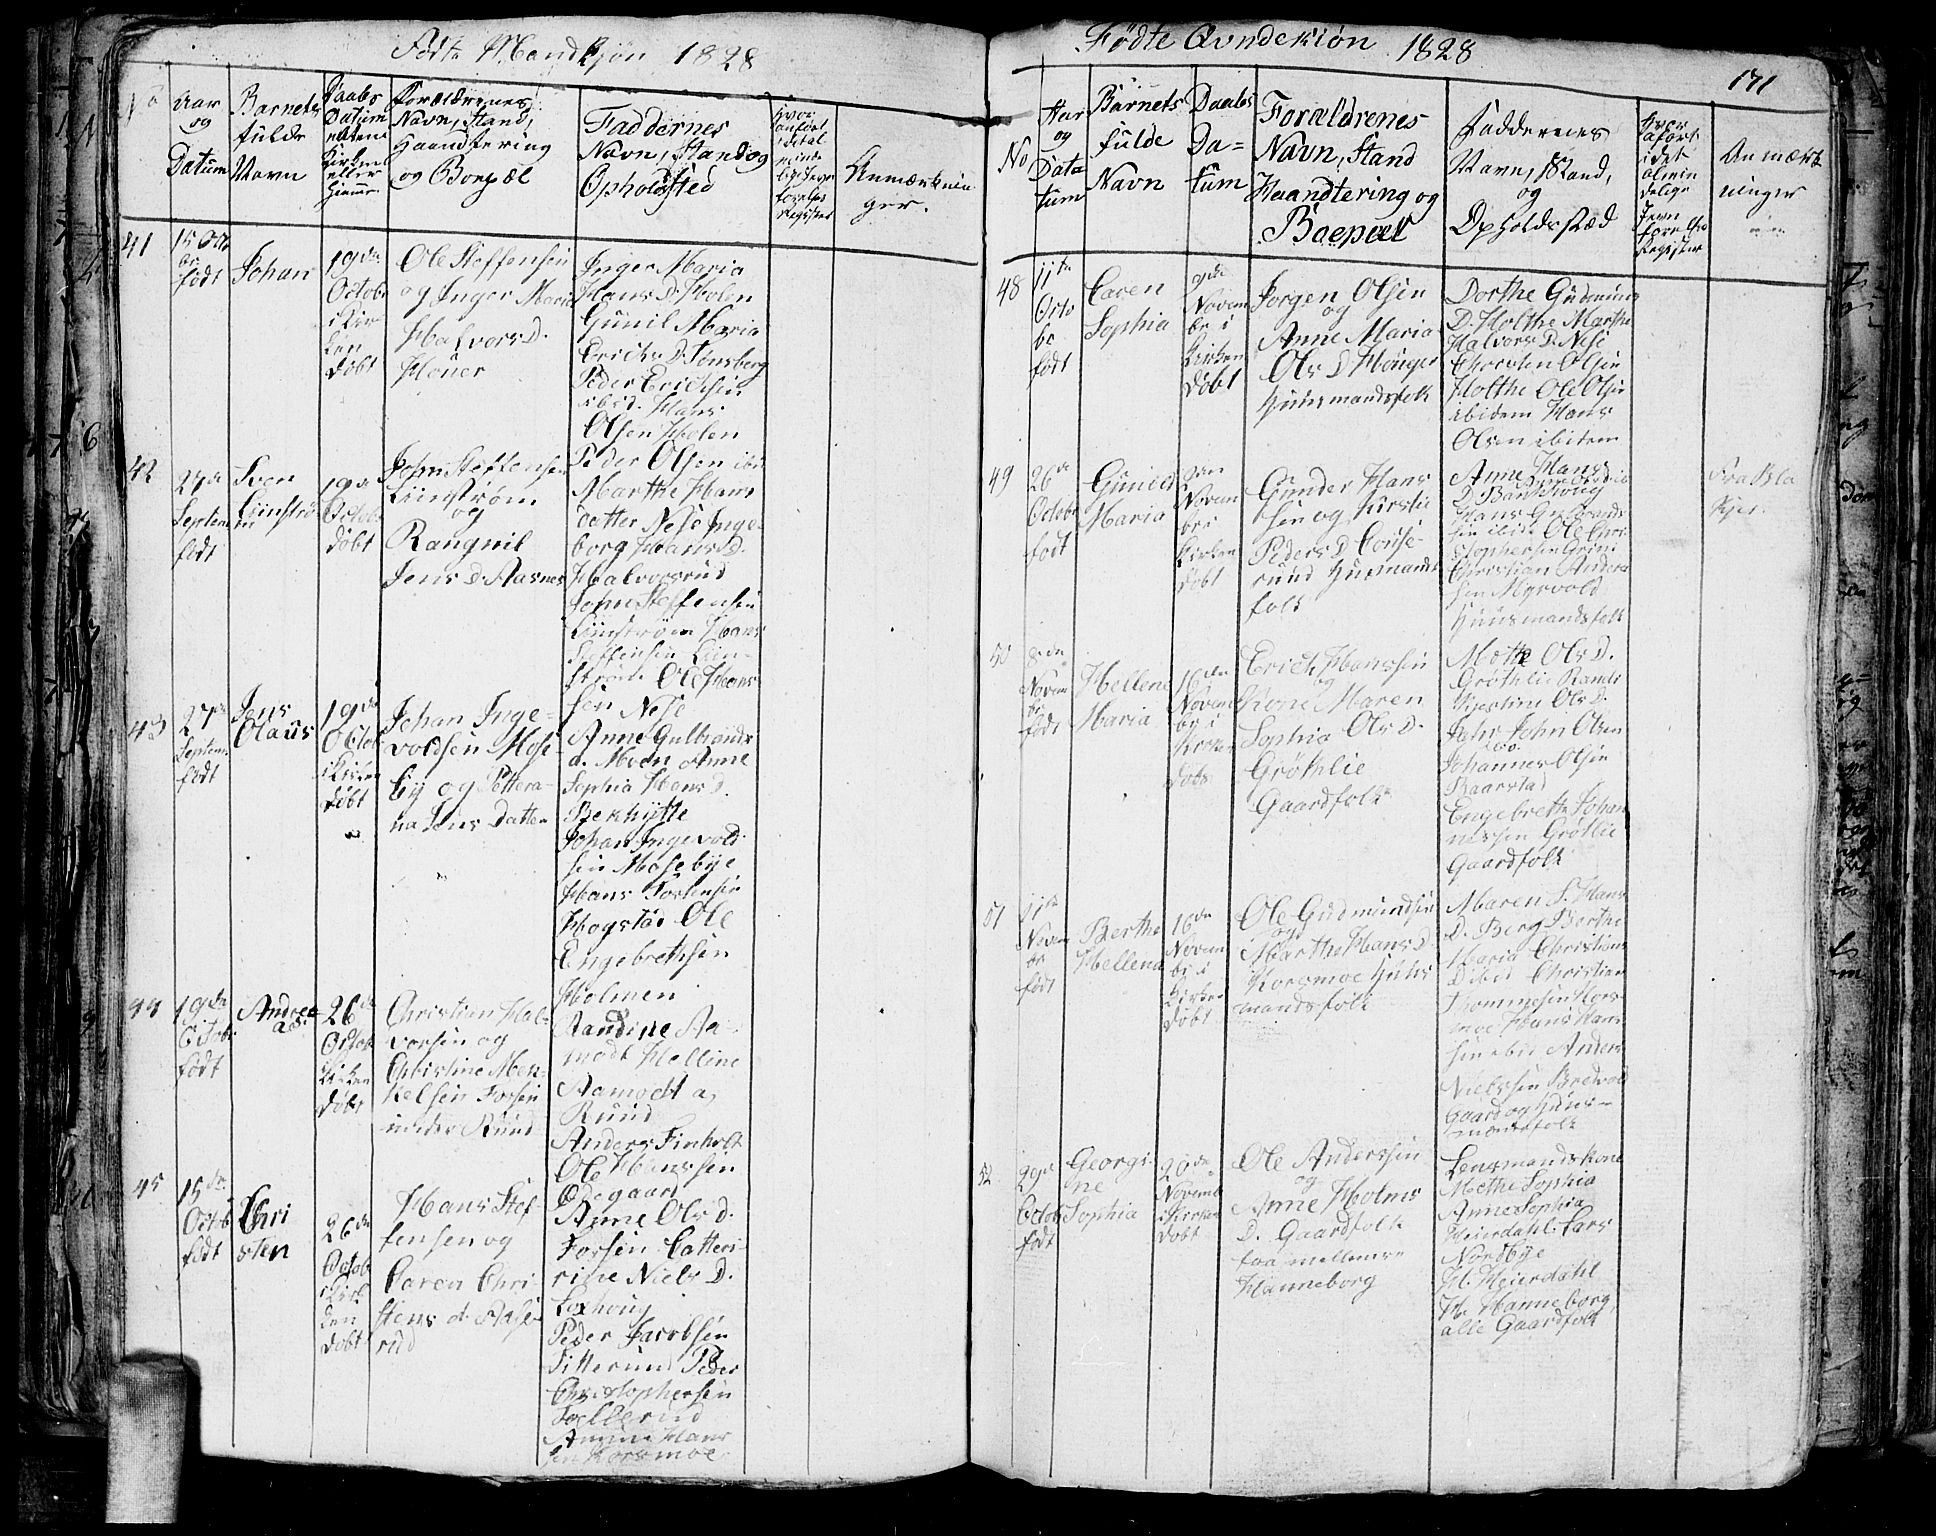 Födte Mandkjön 1828
No
Aar
og
Datum
Barnets
fulde
Navn
Daabs
Datum
enten i
Kirken
eller
hjemme
Forældrenes
Navn, Stand,
Haandtering
og Bopæl
Faddernes
Navn, Stand og
Opholdsted
Anmærknin
ger.
41
15 Octo
br
födt
Johan
19de
Octobr
i Kir
ken
döbt
Ole Steffensen
og Inger Maria
Halvors D.
Höuer
Inger Maria
Hans D. Holen
Gunil Maria
Erichs D. Tönsberg
Peder Erichsen
ibid. Hans
Olsen Holen
Peder Olsen ibid
42
27de
Septem
födt
Sven
Liinströ
m
19de
Octobr
döbt
John Steffensen
Liinström
og
Rangnil
Jens D. Aasnes
Marthe Hans
datter Nese Inge-
borg Hans D.
Halvorsrud
John Steffensen
Liinström Hans
Steffensen Liin-
ström Ole Hans
sen Nese
43
27de
Septem
födt
Jens
Olaus
19de
Octob
i Kirken
döbt
Johan Inge-
voldsen Mose-
by og Pettera-
na Jens Datter
Anne Gulbrands
d. Moen Anne
Sophia Hans D.
Bekhytte
Johan Ingevold
sen Mosebye
Hans Torstensen
Hogstad Ole
Engebrethsen
Holmen
44
19de
Octobr
födt
Andrea
as
26de
Octob
i Kirken
döbt
Christian Hal-
vorsen og
Christine Mek-
kelsen Forsen
under Ruud
Aandine Aa-
modt Helline
Aamodt a,
Ruud
Anders Finholt
Ole Hanssen
Ödegaard
45
15de
Octob
födt
Chri
sten
26de
Octob
i Kirk
ken
döbt
Hans Stef
fensen og
Caren Chri
stens d. Aase
rud
Anne Ols D.
Forsen Catteri-
rine Niels D.
Loxhoug
Peder Jacobsen
Titterud Peder
Christophersen
Tællerud
Hans
sen Korsmoe
Födte Qvindekiön 1828
171
No
Aar
og
Data
tum
Barnets
fulde
Navn
Daabs
Da-
tum
Forældrenes
Navn, Stand
Haandtering og
Boepæl
Faddernes
Navn, Stand,
og
Opholdsstæd
Hvor
anfört
i det
almin
delige
Jevn
förelse
Register
Anmærk
ninger
48
11te
Octo
br
födt
Caren
Sophia
9de
Novem
br i
Kirken
döbt
Jorgen Olsen
og
Anne Maria
Ols D. Hönger
Huusmandsfolk
Dorthe Gudmuns
D. Holthe Marthe
Halvors D. Nese
Thorsten Olsen
Holthe Ole Olsen
ibidem Hans
Olsen ibidem
49
26de
Octobr
födt
Guniel
Maria
9den
Novem
ber
Kirken
döbt
Gunder Hans
sen og Kirstie
Peders D. Conse-
ruud Husmands
folk
Anne Hans
D. Banshoug
Hans Gulbrands
sen ibid. Ole Chri
stophersen Grini
Christian Anders
sen Myrvold
Huusmandsfolk
Fra Bla
kjer.
50
8de
Novem
br
födt
Hellene
Maria
16de
Novem
br i
Kirken
döbt
Erich Hanssen
og
Kone Maren
Sophia Ols D.
Gröthlie
Gaardfolk
Methe Ols D.
Gröthlie Randi
Kjerstine Ols D.
John Olsen
Johannes Olsen
Baarstad
Engebreth Johan
nessen Gröthlie
Gaardfolk
51
11te
Novem
br
födt
Berthe
Hellena
16de
Novem
br i
Kirken
döbt
Ole Gudmundsen
og
Marthe Hans D.
Korsmoe Huus
mandsfolk
Maren S. Hans
D. Berg Berthe
Maria Christians
D. ibid Christian
Thommesen Kors-
moe Hans Han
sen ibid Anders
Nielssen Bredvold
Gaard og Huus-
mandsfolk
52
29de
Octob
födt
Georgi-
ne
Sophia
20de
Novemb
i Kirken
döbt
Ole Anderssen
og
Anne Holms
D. Gaardfolk
paa mellem
Hanneborg
Lensmandskone
Methe Sophia
Anne Sophia
Heierdahl. Lars
Nordbye
H. Heierdahl
H. Hanneborg
alle Gaardfolk